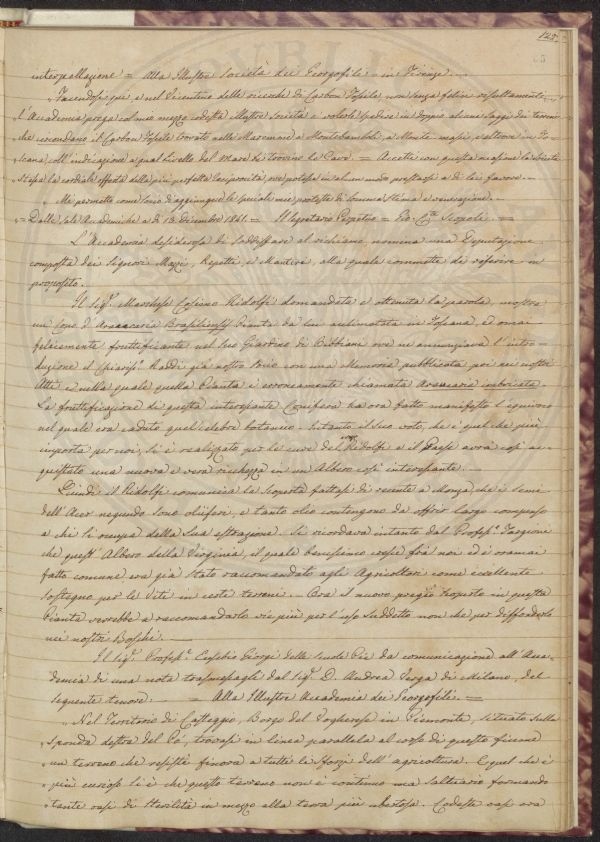 125.
65
interpellazione = Alla Illustre Società dei Georgofili - in Firenze. —
" Facendosi qui, e nel Vicentino delle ricerche di Carbon Fossile non senza felice
L'Accademia prega col mio mezzo codesta Illustre Società a volerle spedire in doppio alcuni saggi dei terreni
che circondano il Carbon Fossile trovato nelle Maremme a Montebamboli, a Monte masi, e altrove in To-
scana, coll'indicazione a qual livello del mare si trovino le Cave. = Accetti con questa occasione la Società
stessa la cordiale offerta della più perfetta reciprocità, ove potessi in alcun modo prestarsi a di lei favore. —
" Mi permetta come Socio di aggiungere le speciali mie proteste di somma stima e venerazione. —
= Dalle Sale Accademiche a dì 13. dicembre 1841. = Il Segretario Perpetuo = Gio: Scopoli. =
L'Accademia desiderosa di soddisfare al richiamo, nomina una Deputazione
composta dei Signori Mazzi, Repetti, e Manteri, alla quale commette di riferire in
proposito.
Il Sig.r Marchese Cosimo Ridolfi domandata e ottenuta la parola, mostra
un cono d'Araucaria Brasiliensis pianta da lui acclimatata in Toscana, ed omai
felicemente fruttificante nel suo Giardino di Bibbiani ove ne annunziava l'intro-
duzione il Chiariss.o Raddi già nostro Socio con una Memoria pubblicata poi nei nostri
Atti e nella quale quella Pianta è erroneamente chiamata Araucaria imbricata.
La fruttificazione di questa interessante Conifera ha ora fatto manifesto l'equivoco
nel quale era caduto quel celebre botanico. Intanto il suo voto, che è quel che più
importa per noi, si è realizzato per le cure del Ridolfi e il Paese avrà così ac-
quistato una nuova e vera ricchezza in un Albero così interessante. —
Quindi il Ridolfi comunica la scoperta fattasi di recente a Monza, che i semi
dell'Acer negundo sono oleiferi, e tanto olio contengono da offrir largo compenso
a chi si occupa della sua estrazione. Si ricordava intanto dal Profess.r Targioni
che quest'Albero della Virginia, il quale benissimo cresce fra noi ed è oramai
fatto comune, era già stato raccomandato agli Agricoltori come eccellente
sostegno per le Viti in certe terreni. — Ora il nuovo pregio scoperto in questa
Pianta verrebbe a raccomandarlo vie più per l'uso suddetto non che per diffonderlo
nei nostri Boschi. —
Il Sig.r Profess.r Eusebio Giorgi delle Scuole Pie dà comunicazione all'Acca-
demia di una nota trasmessagli dal Sig.r D. Andrea Verga di Milano, del
seguente tenore. — Alla Illustre Accademia dei Georgofili. =
" Nel Territorio di Casteggio, Borgo del Vogherese in Piemonte, situato sulla
" sponda destra del Po, trovasi in linea parallela al corso di questo fiume
" un terreno che resiste finora a tutti li sforzi dell'agricoltura. E quel che è
" più curioso si è che questo terreno non è continuo ma saltuario formando
" tante oasi di sterilità in mezzo alla terra più ubertosa. Codeste oasi era